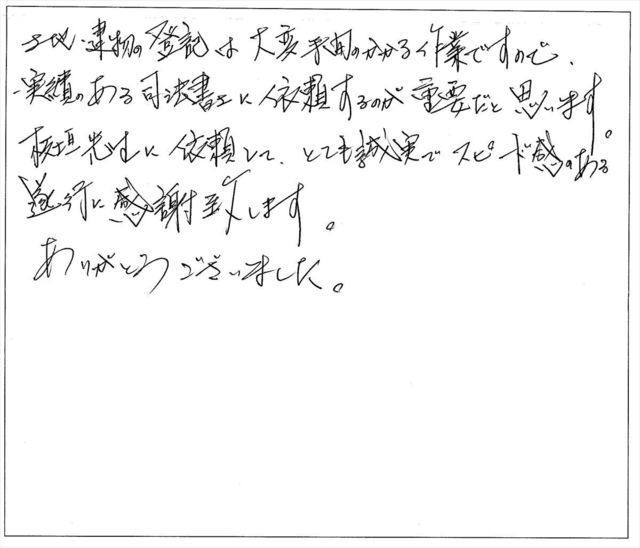 土地・建物の登記は大変手間のかかる作業ですので、
実績のある司法書士に依頼するのが重要だと思います。
板垣先生に依頼して、とても誠実でスピード感のある
遂行に感謝致します。
ありがとうございました。